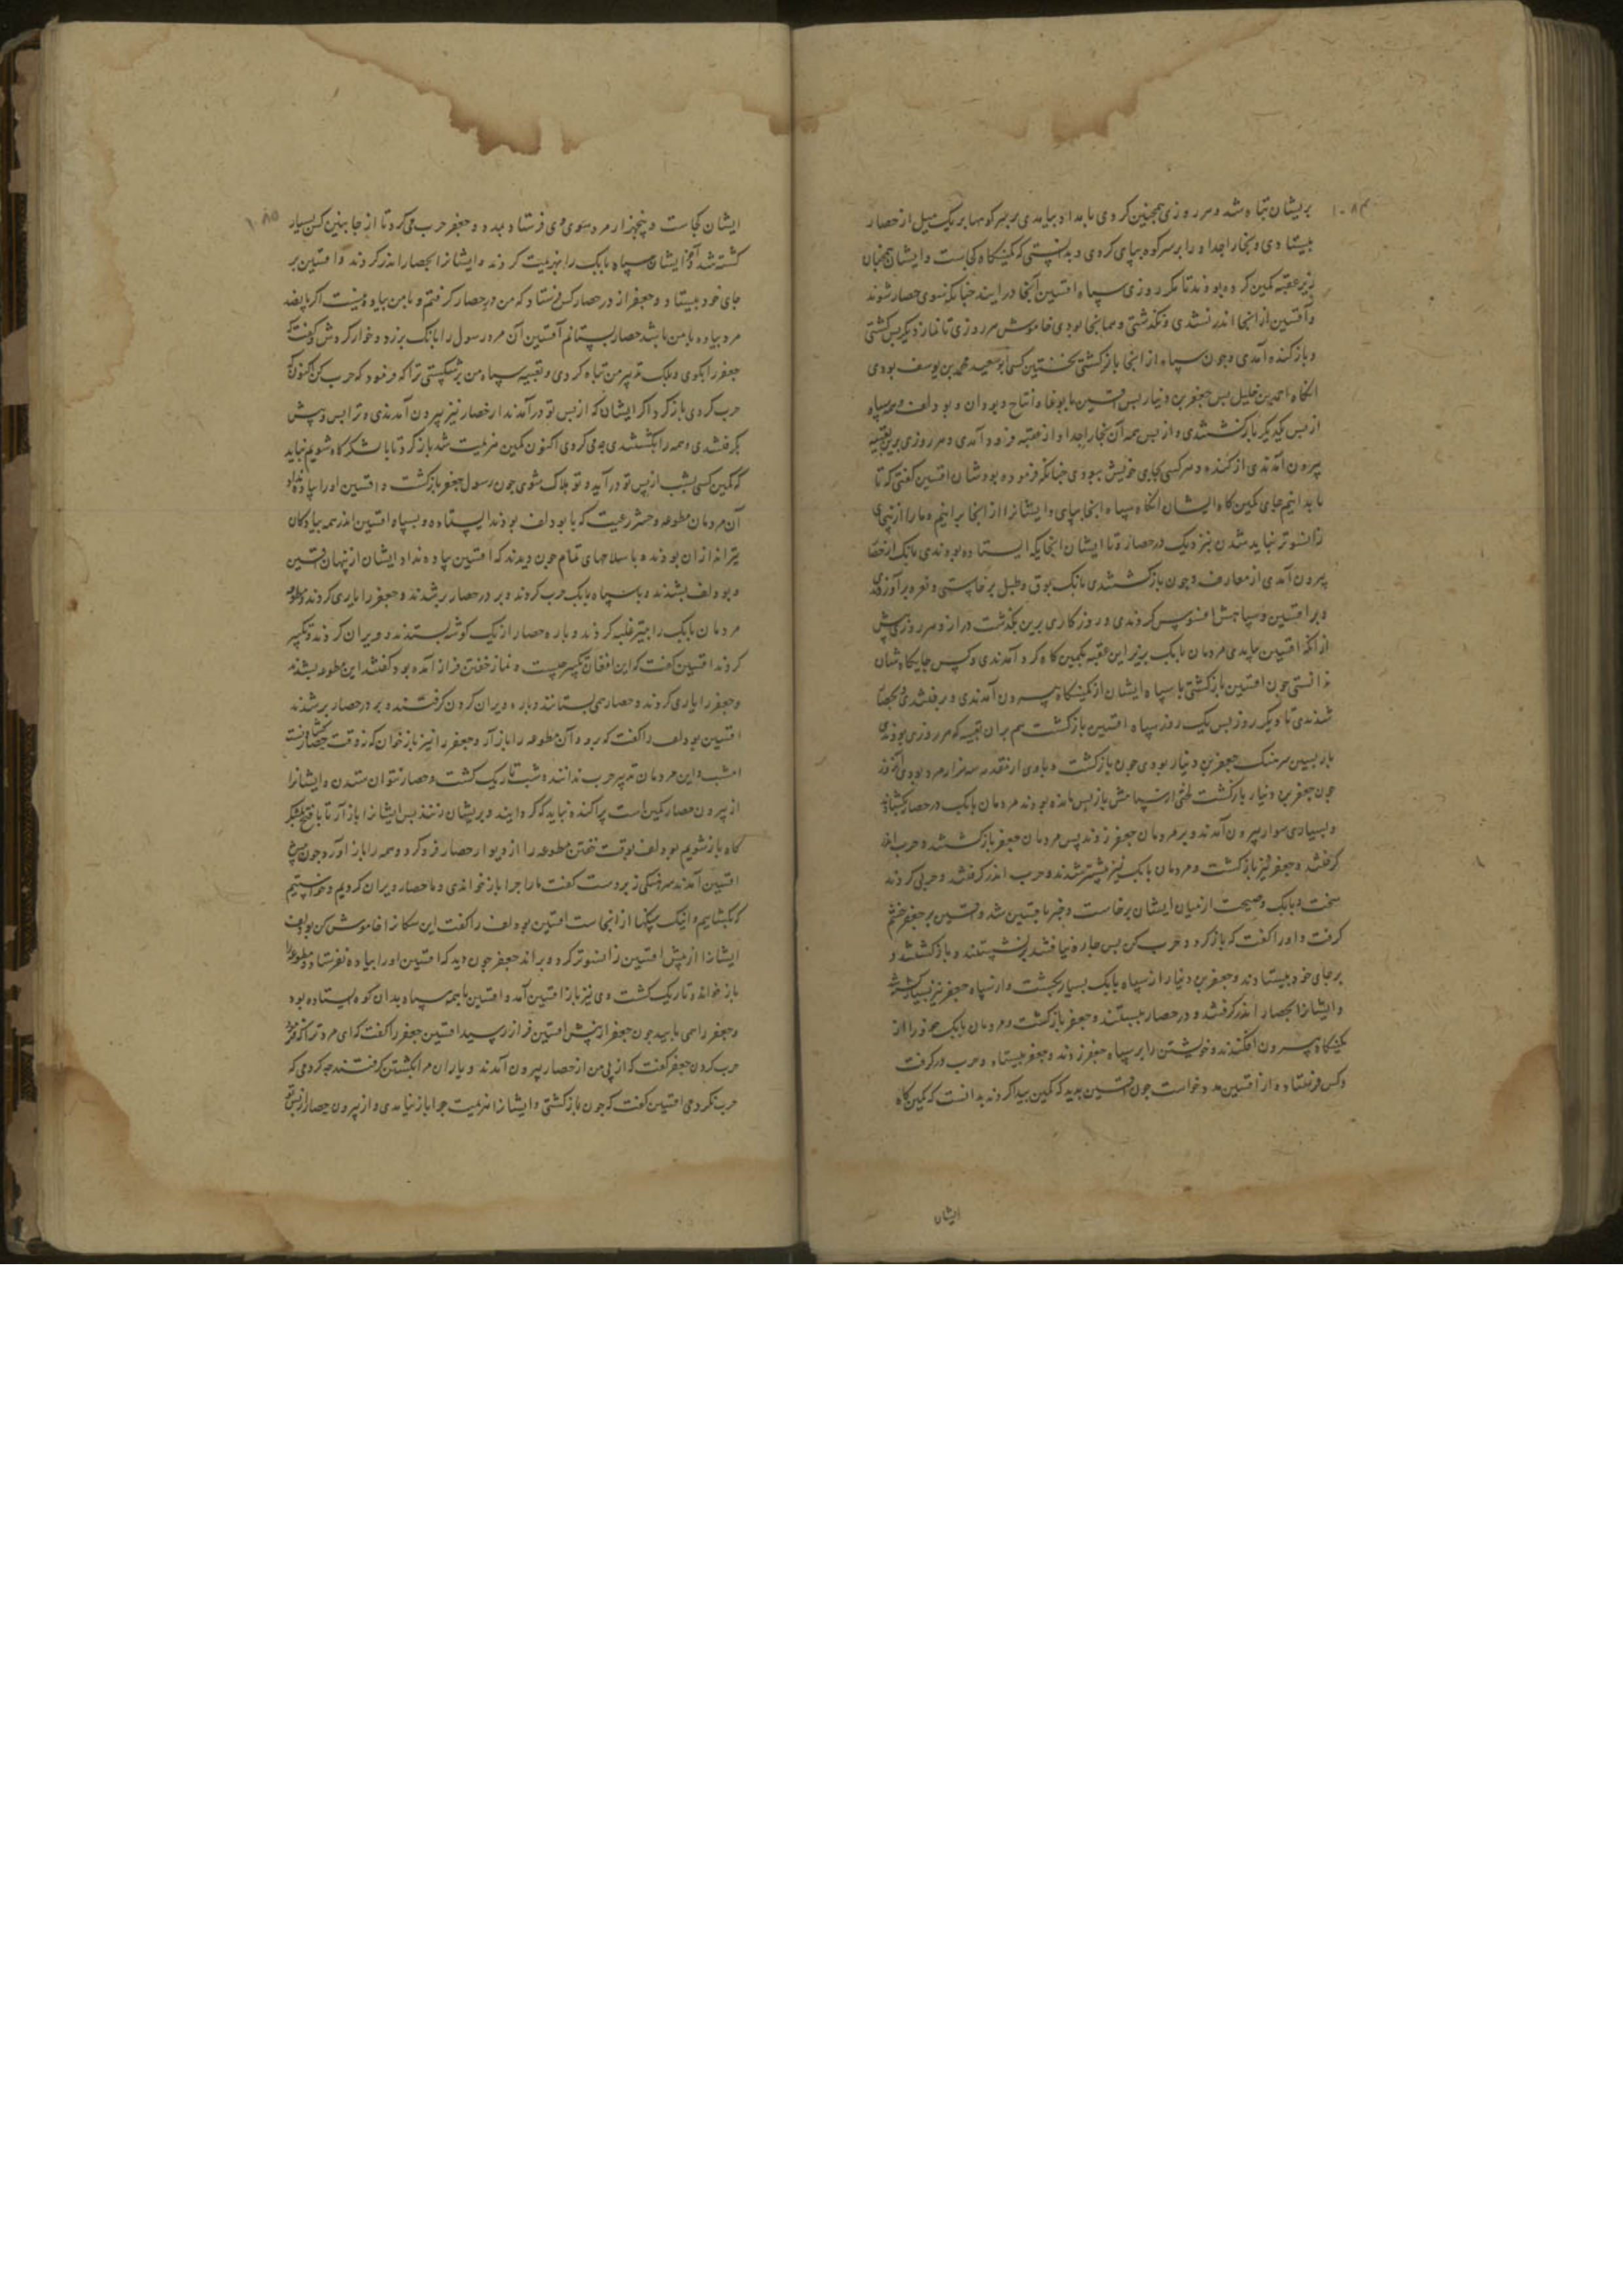 ۱۰۸۴
بریشان تباه شد و هر روزی همچنین کردی بامداد بیامدی بر سر کوهها بر یک میل از حصار
بیستادی و بخارا خداه را بر سر کوه بپای کردی و بدانستی که کمینگاه کجاست و ایشان همچنان
بزیر عقبه کمین کرده بودند تا مگر روزی سپاه افشین آنجا درآیند چنانکه بسوی حصار شوند
و افشین از آنجا اندر نشدی و نگذشتی و همانجا بودی خاموش هر روزی تا نماز دیگر پس گشتی
و باز کنده آمدی و چون سپاه از آنجا بازگشتی نخستین کسی ابوسعید محمد بن یوسف بودی
آنگاه احمد بن خلیل پس جعفر بن دینار پس افشین با بوغا و و بودلف و همه سپاه
از پس یکدیگر بازگشتندی و از پس همه آن بخارا خداه از عقبه فرود آمدی و هر روزی برین تعبیه
بیرون آمدندی از کنده و هر کسی بجای خویش ببودی چنانکه فرموده بودشان افشین گفتی که تا
ما بدانیم جای کمین گاه ایشان آنگاه سپاه اینجا بپای و ایشانرا از آنجا برانیم و ما را از پی
زانسوتر نباید شدن بنزدیک در حصار و تا ایشان آنجایگه ایستاده بودندی بابک از حصار
بیرون آمدی از معارف و چون بازگشتندی بانک بوق و طبل برخاستی و نعره برآوردندی
و بر افشین و سپاهش افسوس کردندی و روزگاری برین بگذشت دراز و هر روزی پیش
از آنکه افشین بیامدی مردمان بابک بزیر این عقبه بکمین گاه گرد آمدندی و کس جایگاه شان
ندانستی چون افشین بازگشتی با سپاه ایشان از کمینگاه بیرون آمدندی و برفتندی و بحصار
شدندی تا دیگر روز پس یک روز سپاه افشین بازگشت هم بران تعبیه که هر روزی بودندی
باز پسین سرهنگ جعفر بن دینار بودی چون بازگشت و با وی از نقد سه هزار مرد بودی آنروز
چون جعفر بن دینار بازگشت لختی از سپاهش باز پس مانده بودند مردمان بابک در حصار بگشادند
و بسیاری سوار بیرون آمدند و بر مردمان جعفر زدند پس مردمان جعفر بازگشتند و حرب اندر
گرفتند و جعفر نیز بازگشت و مردمان بابک نیز بیشتر شدند و حرب اندر گرفتند و حربی کردند
سخت و بانک و صیحت از میان ایشان برخاست و خبر بافشین شد و افشین بر جعفر خشم
گرفت و او را گفت که بازگرد و حرب مکن پس چاره نیافتند بنشستند و بازگشتند و
بر جای خود بیستادند و جعفر بن دینار از سپاه بابک بسیار بکشت و از سپاه جعفر نیز بسیار کشته شد
و ایشانرا بحصار اندر گرفتند و در حصار ببستند و جعفر بازگشت و مردمان بابک خود را از
کمینگاه بیرون افکندند و خویشتن را بر سپاه جعفر زدند و جعفر بیستاد و حرب در گرفت
و کس فرستاد و از افشین مدد خواست چون افشین بدید که کمین پیدا کردند بدانست که کمین گاه
ایشان
۱۰۸۵
ایشان کجاست و پنجهزار مرد بسوی وی فرستاد بمدد و جعفر حرب می کرد تا از جانبین کس بسیار
کشته شد و آخر ایشان سپاه بابک را بهزیمت کردند و ایشانرا بحصار اندر کردند و افشین بر
جای خود بیستاد و جعفر از در حصار کس فرستاد که من در حصار گرفتم و با من پیاده نیست اگر پانصد
مرد پیاده با من باشد حصار بستانم افشین آن مرد رسول را بانک برزد و خوار کردش و گفت که
جعفر را بگوی و بلک تدبیر من تباه کردی و تعبیه سپاه من برشکستی ترا که فرمود که حرب کن اکنون که
حرب کردی بازگرد اگر ایشان که از پس تو درآمدند از حصار نیز بیرون آمدندی و ترا پس و پیش
بگرفتندی و همه را بکشتندی چه می کردی اکنون کمین هزیمت شد بازگرد تا با لشکرگاه شویم نباید
که کمین کسی بشب از پس تو درآید و تو هلاک شوی چون رسول جعفر بازگشت و افشین او را پیاده نداد
آن مردمان مطوعه و حشر رعیت که با بودلف بودند ایستاده و بسپاه افشین اندر همه پیادگان
تیرانداز ان بودند و با سلاحهای تمام چون دیدند که افشین پیاده نداد ایشان از پنهان افشین
و بودلف بشدند و با سپاه بابک حرب کردند و بر در حصار بر شدند و جعفر را یاری کردند و مطوعه
مردمان بابک را بتیر غلبه کردند و باره حصار از یک گوشه بستدند و ویران کردند و تکبیر
کردند افشین گفت که این افغان تکبیر چیست و نماز خفتن فراز آمده بود گفتند این مطوعه بشدند
و جعفر را یاری کردند و حصار همی بستانند و باره ویران کردن گرفتند و بر در حصار بر شدند
افشین بودلف را گفت که برو و آن مطوعه را باز آر و جعفر را نیز باز خوان که نه وقت حصار گشادنست
امشب و این مردمان تدبیر حرب ندانند و شب تاریک گشت و حصار نتوان ستدن و ایشانرا
از بیرون حصار کمین است پراکنده نباید که گرد آیند و بریشان زنند پس ایشانرا باز آر تا بلشکر
گاه باز شویم بودلف بوقت خفتن مطوعه را از دیوار حصار فرو کرد و همه را باز آورد چون پیش
افشین آمدند سرهنگی زبردست گفت ما را چرا باز خواندی و ما حصار ویران کردیم و خواستیم
که بگشاییم و اینک سنگها از آنجاست افشین بودلف را گفت این سگانرا خاموش کن بودلف
ایشانرا از پیش افشین زانسوتر کرد و براند جعفر چون دید که افشین او را پیاده نفرستاد و مطوعه را
باز خواند و تاریک گشت وی نیز باز افشین آمد و افشین با همه سپاه بدان کوه ایستاده بود
و جعفر را همی پایید چون جعفر از پیش افشین فراز رسید افشین جعفر را گفت که ای مرد ترا که فرمود
حرب کردن جعفر گفت که از پی من از حصار بیرون آمدند و یاران مرا بکشتن گرفتند چه کردمی که
حرب نکردمی افشین گفت که چون بازگشتی و ایشانرا هزیمت چرا باز نیامدی و از بیرون حصار